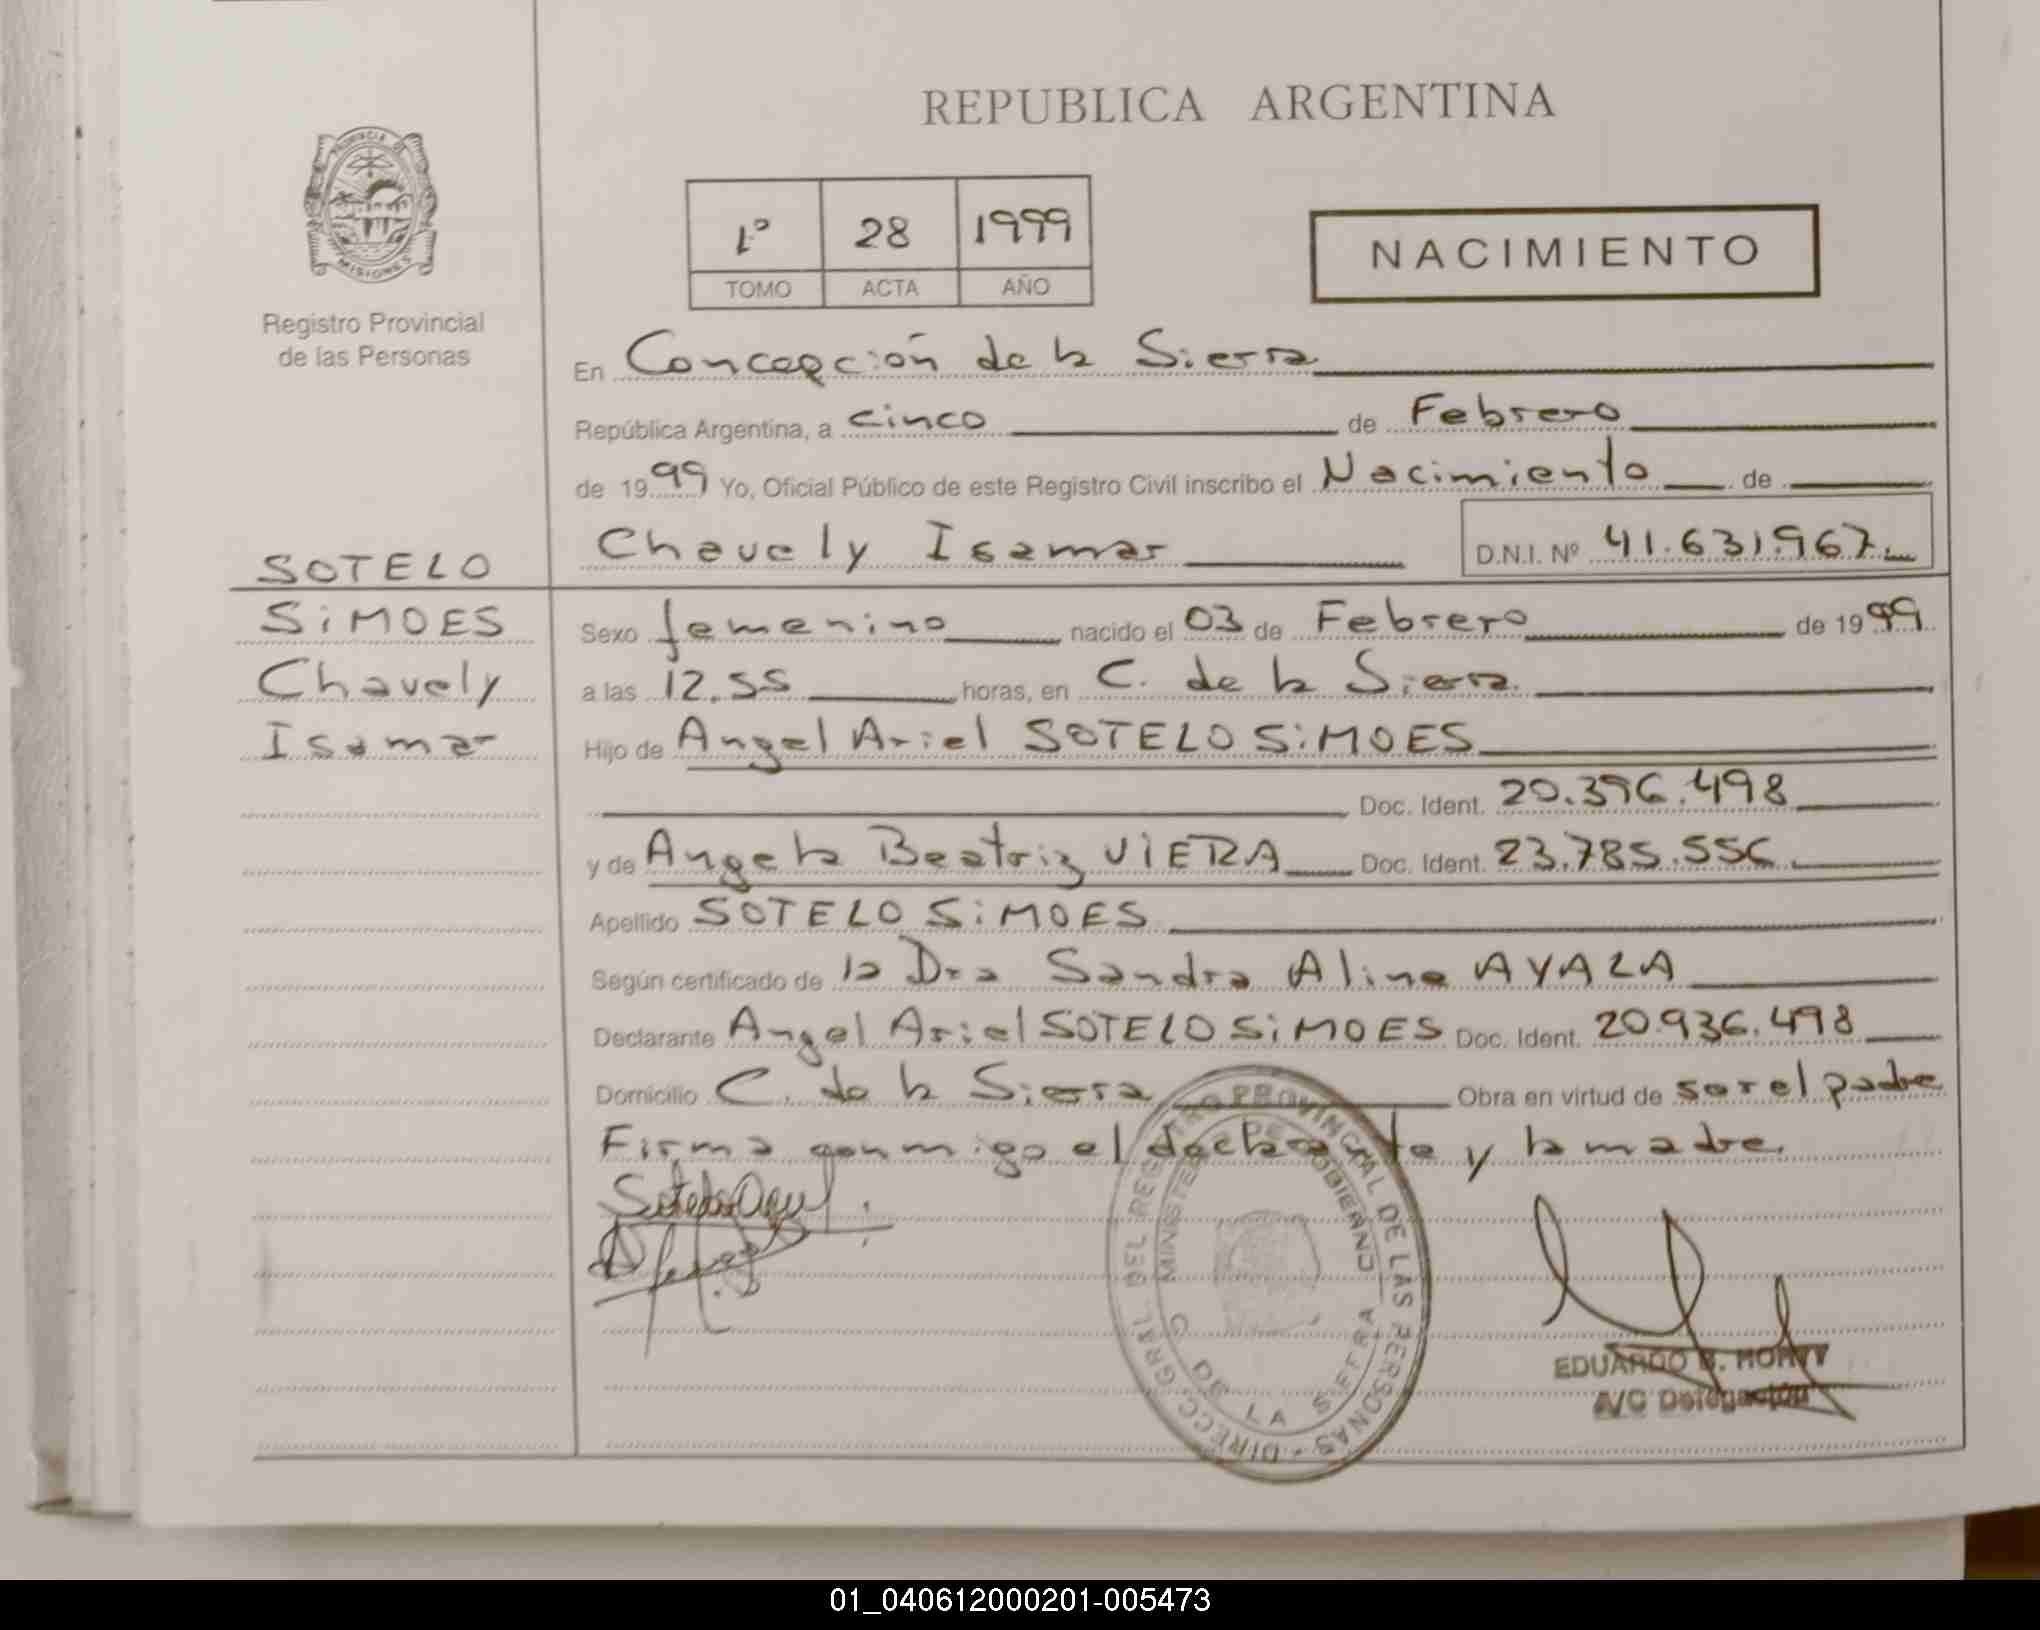 REPUBLICA ARGENTINA
PROVINCIA DE MISIONES
Registro Provincial
de las Personas
1º 28 1999
TOMO ACTA AÑO
NACIMIENTO
En Concepción de la Sierra
República Argentina, a cinco de Febrero
de 1999 Yo, Oficial Público de este Registro Civil inscribo el Nacimiento de
Chavely Isamar D.N.I. Nº 41.631.967.
SOTELO
SiMOES
Chavely
Isamar
Sexo femenino nacido el 03 de Febrero de 1999
a las 12.55 horas, en C. de la Sierra.
Hijo de Angel Ariel SOTELO SiMOES
Doc. Ident. 20.396.498
y de Angela Beatriz ViERA Doc. Ident. 23.785.556.
Apellido SOTELO SiMOES
Según certificado de la Dra Sandra Alina AYALA
Declarante Angel Ariel SOTELO SiMOES Doc. Ident. 20.936.498
Domicilio C. de la Sierra Obra en virtud de ser el padre
Firma conmigo el declarante y la madre.
DIRECC. GRAL. DEL REGISTRO PROVINCIAL DE LAS PERSONAS
MINISTERIO DE GOBIERNO
C DE LA SIERRA
EDUARDO B.
A/C Delegación
01_040612000201-005473